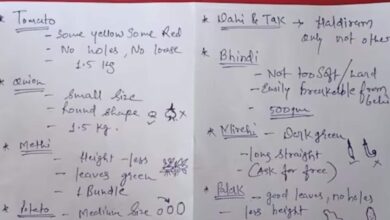 * Tomato
- Some yellow Some Red
- No holes, No loose
- 1.5 kg
* Onion
- Small Size
- Round shape
- 1.5 kg.
* Methi
- Height - less
- leaves green
- 1 Bundle
* Potato - Medium Size
* Dahi & Tak → Haldiram
Only not other
* Bhindi
- Not too soft / hard
- Easily breakable from
- 500gm
* Mirchi - Dark green
- long straight
(Ask for free)
* Palak - good leaves, no holes
- less height